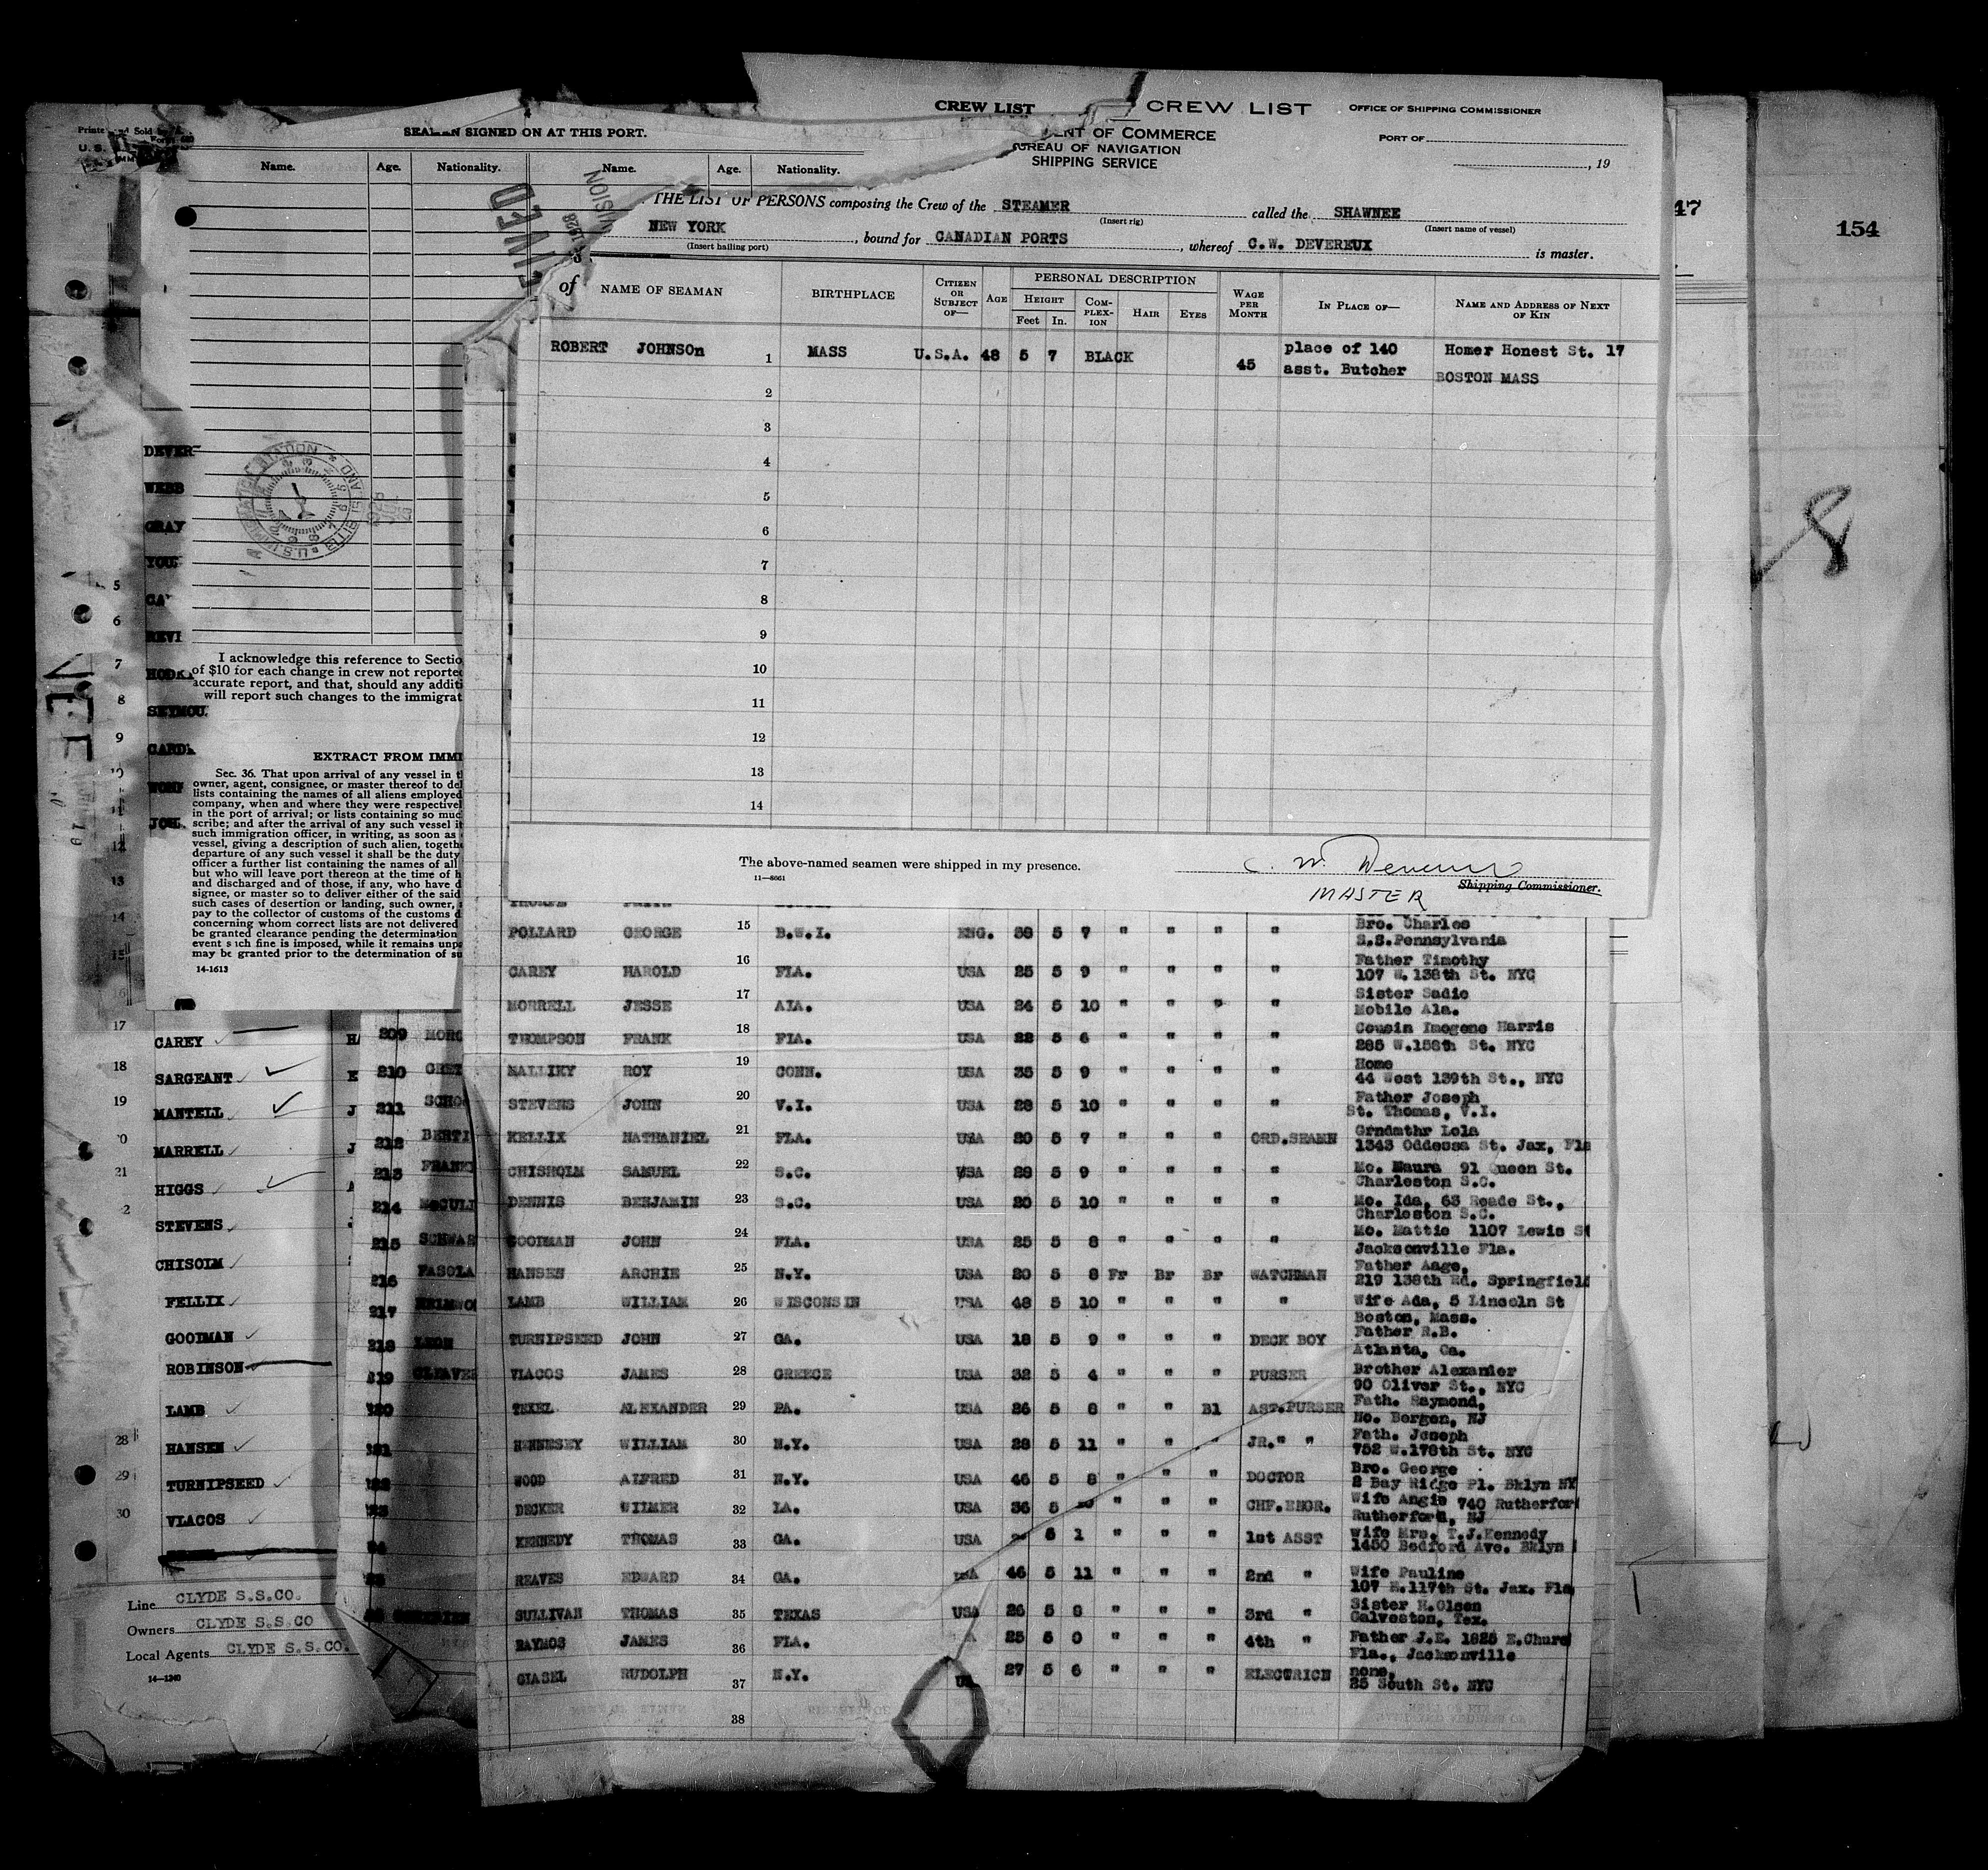 CREW LIST
CREW LIST
OFFICE OF SHIPPING COMMISSIONER
PORT OF
, 19
OF COMMERCE
BUREAU OF NAVIGATION
SHIPPING SERVICE
THE LIST OF PERSONS composing the Crew of the STEAMER called the SHAWNEE
(Insert rig) (Insert name of vessel)
NEW YORK , bound for CANADIAN PORTS , whereof C.W. DEVEREUX is master.
(Insert hailing port)
of NAME OF SEAMAN BIRTHPLACE CITIZEN OR SUBJECT OF— AGE PERSONAL DESCRIPTION WAGE PER MONTH IN PLACE OF— NAME AND ADDRESS OF NEXT OF KIN
HEIGHT COMPLEXION HAIR EYES
Feet In.
ROBERT JOHNSOn 1 MASS U.S.A. 48 5 7 BLACK 45 place of 140 Homer Honest St. 17
asst. Butcher BOSTON MASS
2
3
4
5
6
7
8
9
10
11
12
13
14
The above-named seamen were shipped in my presence.
11—8061
C. W. Devereux
Shipping Commissioner.
MASTER
POLLARD GEORGE 15 B.W.I. ENG. 5 7 " " " " Bro. Charles
S.S.Pennsylvania
CAREY HAROLD 16 FLA. USA 25 5 9 " " " " Father Timothy
107 W. 138th St. NYC
MORRELL JESSE 17 ALA. USA 24 5 10 " " " " Sister Sadie
Mobile Ala.
THOMPSON FRANK 18 FLA. USA 22 5 6 " " " " Cousin Imogene Harris
285 W.158th St. NYC
MALLIKY ROY 19 CONN. USA 35 5 9 " " " " Home
44 West 139th St., NYC
STEVENS JOHN 20 V.I. USA 28 5 10 " " " " Father Joseph
St. Thomas, V.I.
KELLIX NATHANIEL 21 FLA. USA 20 5 7 " " " ORD.SEAMN Grndmthr Lola
1343 Oddessa St. Jax, Fla
CHISHOLM SAMUEL 22 S.C. USA 28 5 9 " " " " Mo. Maura 91 Queen St.
Charleston S.C.
DENNIS BENJAMIN 23 S.C. USA 20 5 10 " " " " Mo. Ida, 63 Reade St.,
Charleston S.C.
GOODMAN JOHN 24 FLA. USA 25 5 8 " " " " Mo. Mattie 1107 Lewis St
Jacksonville Fla.
HANSEN ARCHIE 25 N.Y. USA 20 5 8 Fr Br Br WATCHMAN Father Aage,
219 138th Rd. Springfield
LAMB WILLIAM 26 WISCONSIN USA 48 5 10 " " " " Wife Ada, 5 Lincoln St
Boston, Mass.
TURNIPSEED JOHN 27 GA. USA 18 5 9 " " " DECK BOY Father R.B.
Atlanta, Ga.
VLACOS JAMES 28 GREECE USA 32 5 4 " " " PURSER Brother Alexander
90 Oliver St., NYC
TEXEL ALEXANDER 29 PA. USA 26 5 8 " " Bl AST.PURSER Fath. Raymond,
No. Bergen, NJ
HENNESEY WILLIAM 30 N.Y. USA 28 5 11 " " " JR." " Fath. Joseph
752 W.178th St. NYC
WOOD ALFRED 31 N.Y. USA 46 5 8 " " " DOCTOR Bro. George
2 Bay Ridge Pl. Bklyn NY
DECKER WILMER 32 LA. USA 36 5 " " " CHF.ENGR. Wife Angie 740 Rutherford
Rutherford, NJ
KENNEDY THOMAS 33 GA. USA 5 1 " " " 1st ASST Wife Mrs. T.J.Kennedy
1450 Bedford Ave. Bklyn
REAVES EDWARD 34 GA. USA 46 5 11 " " " 2nd " Wife Pauline
107 E.117th St. Jax. Fla
SULLIVAN THOMAS 35 TEXAS USA 26 5 8 " " " 3rd " Sister H.Olsen
Galveston, Tex.
RAYMOS JAMES 36 FLA. 25 5 0 " " " 4th " Father J.E. 1825 E.Churc
Fla., Jacksonville
GIASEL RUDOLPH 37 N.Y. 27 5 6 " " " ELECTRICN none,
25 South St. NYC
38
SEAMEN SIGNED ON AT THIS PORT.
Name. Age. Nationality. Name. Age. Nationality.
U.S. IMMIGRATION STATION
I acknowledge this reference to Sectio
of $10 for each change in crew not reporte
accurate report, and that, should any additi
will report such changes to the immigrat
EXTRACT FROM IMMI
Sec. 36. That upon arrival of any vessel in t
owner, agent, consignee, or master thereof to del
lists containing the names of all aliens employed
company, when and where they were respectivel
in the port of arrival; or lists containing so muc
scribe; and after the arrival of any such vessel it
such immigration officer, in writing, as soon as
vessel, giving a description of such alien, togethe
departure of any such vessel it shall be the duty
officer a further list containing the names of all
but who will leave port thereon at the time of h
and discharged and of those, if any, who have d
signee, or master so to deliver either of the said
such cases of desertion or landing, such owner,
pay to the collector of customs of the customs d
concerning whom correct lists are not delivered
be granted clearance pending the determination
event such fine is imposed, while it remains unp
may be granted prior to the determination of su
14-1613
DEVER
WEBB
GRAY
YOU
CA
REVI
HODK
SEYMOU
CARD
JOH
CAREY
SARGEANT
MANTELL
MARRELL
HIGGS
STEVENS
CHISOLM
FELLIX
GOODMAN
ROBINSON
LAMB
HANSEN
TURNIPSEED
VLACOS
209 MORG
210 GREY
211 SCHO
212 BERTI
213 FRANK
214 McCULL
215 SCHWAS
216 FASOLA
217
218 LEON
219 CLEAVES
Line CLYDE S.S.CO.
Owners CLYDE S.S.CO
Local Agents CLYDE S.S.CO.
14—1240
47
154
8